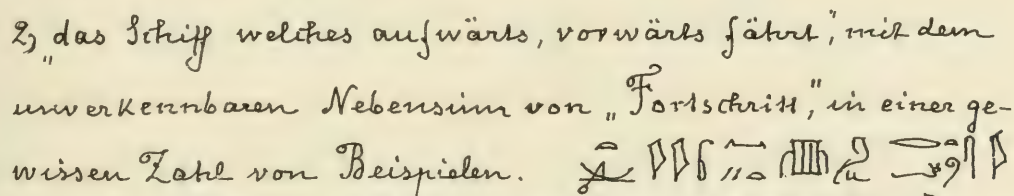 2, „das Schiff welches aufwärts, vorwärts fährt", mit dem
unverkennbaren Nebensinn von „Fortschritt", in einer ge-
wissen Zahl von Beispielen.